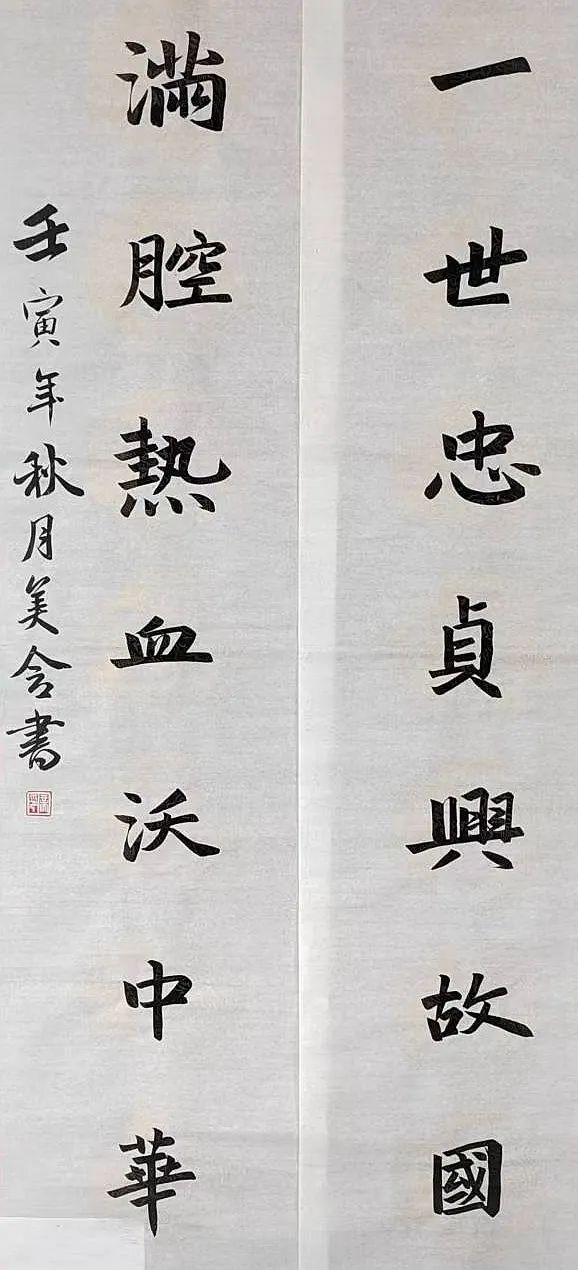 一世忠貞興故國
滿腔熱血沃中華
壬寅年秋月美含書